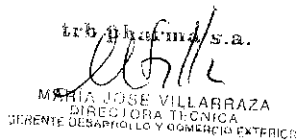 trb pharma s.a.
MARIA JOSE VILLARRAZA
DIRECTORA TECNICA
GERENTE DESARROLLO Y COMERCIO EXTERIOR